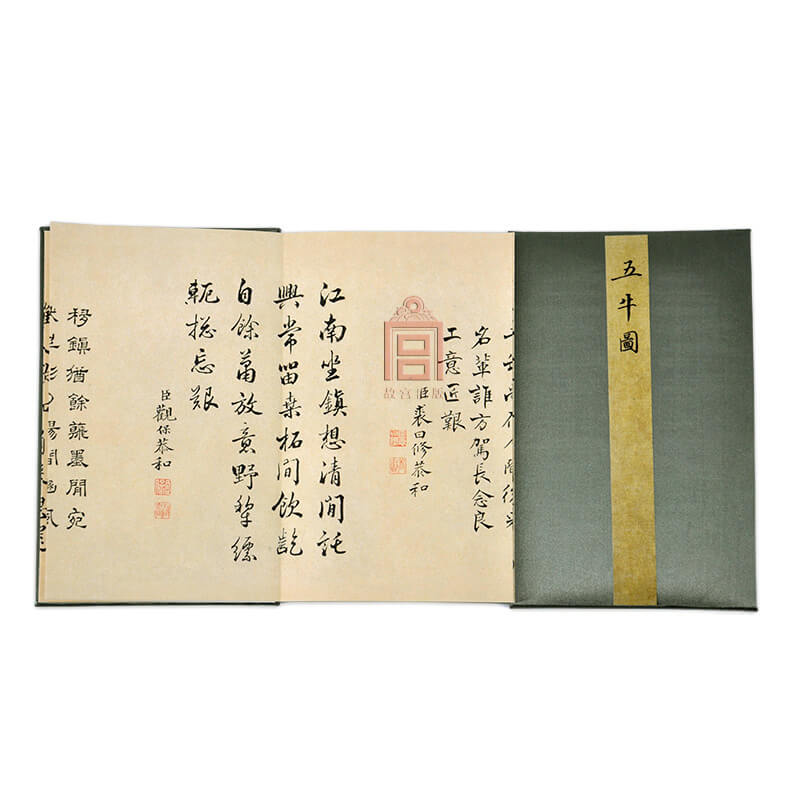 五牛圖
名輩誰方駕長念良
工意匠艱
臣裘曰修恭和
故宫出版
江南坐鎮想清閒託
興常留桒柘間飲齕
自餘蕭放意野犂縹
軛摠忘艱
臣觀保恭和
鎮猶餘藁墨閒宛